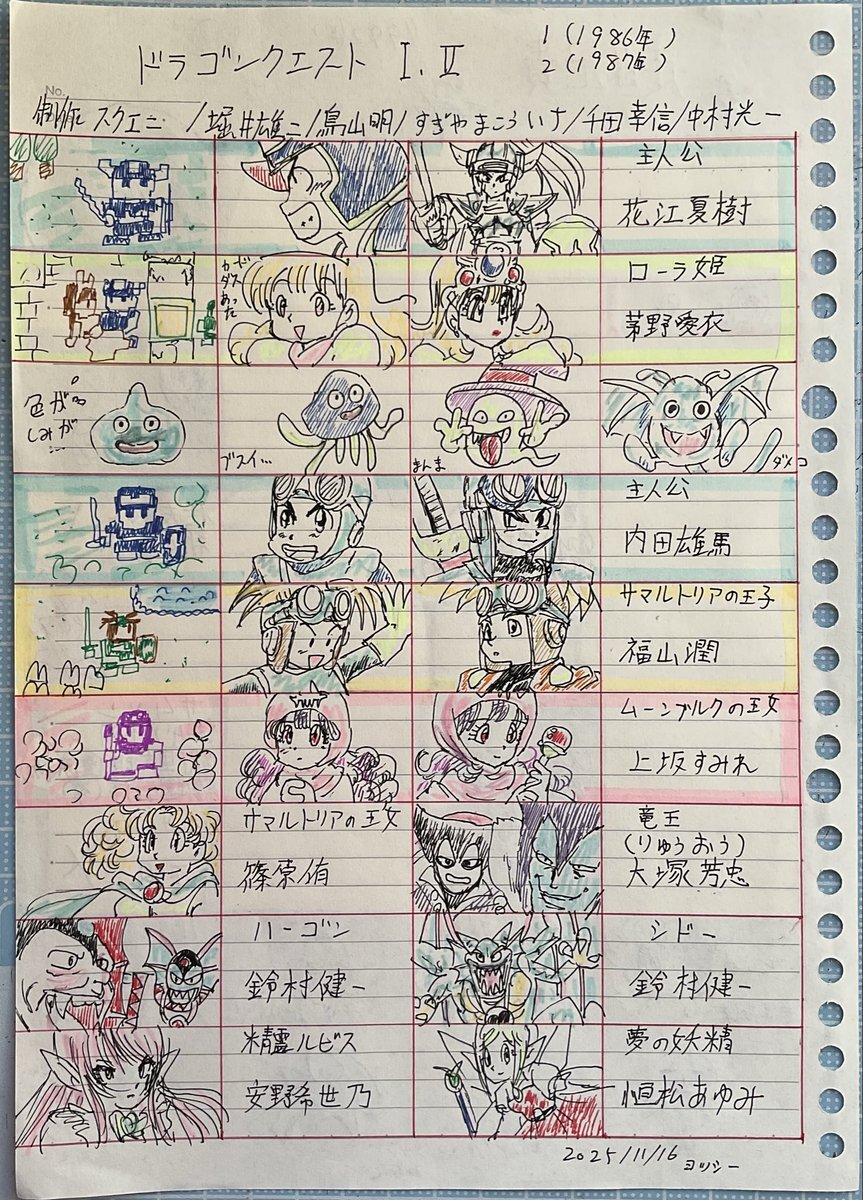 ドラゴンクエスト I.II
1(1986年)
2(1987年)
No.
制作 スクエニ/堀井雄二/鳥山明/すぎやまこういち/千田幸信/中村光一
主人公
花江夏樹
ローラ姫
茅野愛衣
色が
しみが
ブスイ…
まんま
主人公
内田雄馬
サマルトリアの王子
福山潤
ムーンブルクの王女
上坂すみれ
サマルトリアの王女
篠原侑
竜王
(りゅうおう)
大塚芳忠
ハーゴン
鈴村健一
シドー
鈴村健一
精霊ルビス
安野希世乃
夢の妖精
恒松あゆみ
2025/11/16 ヨッシー